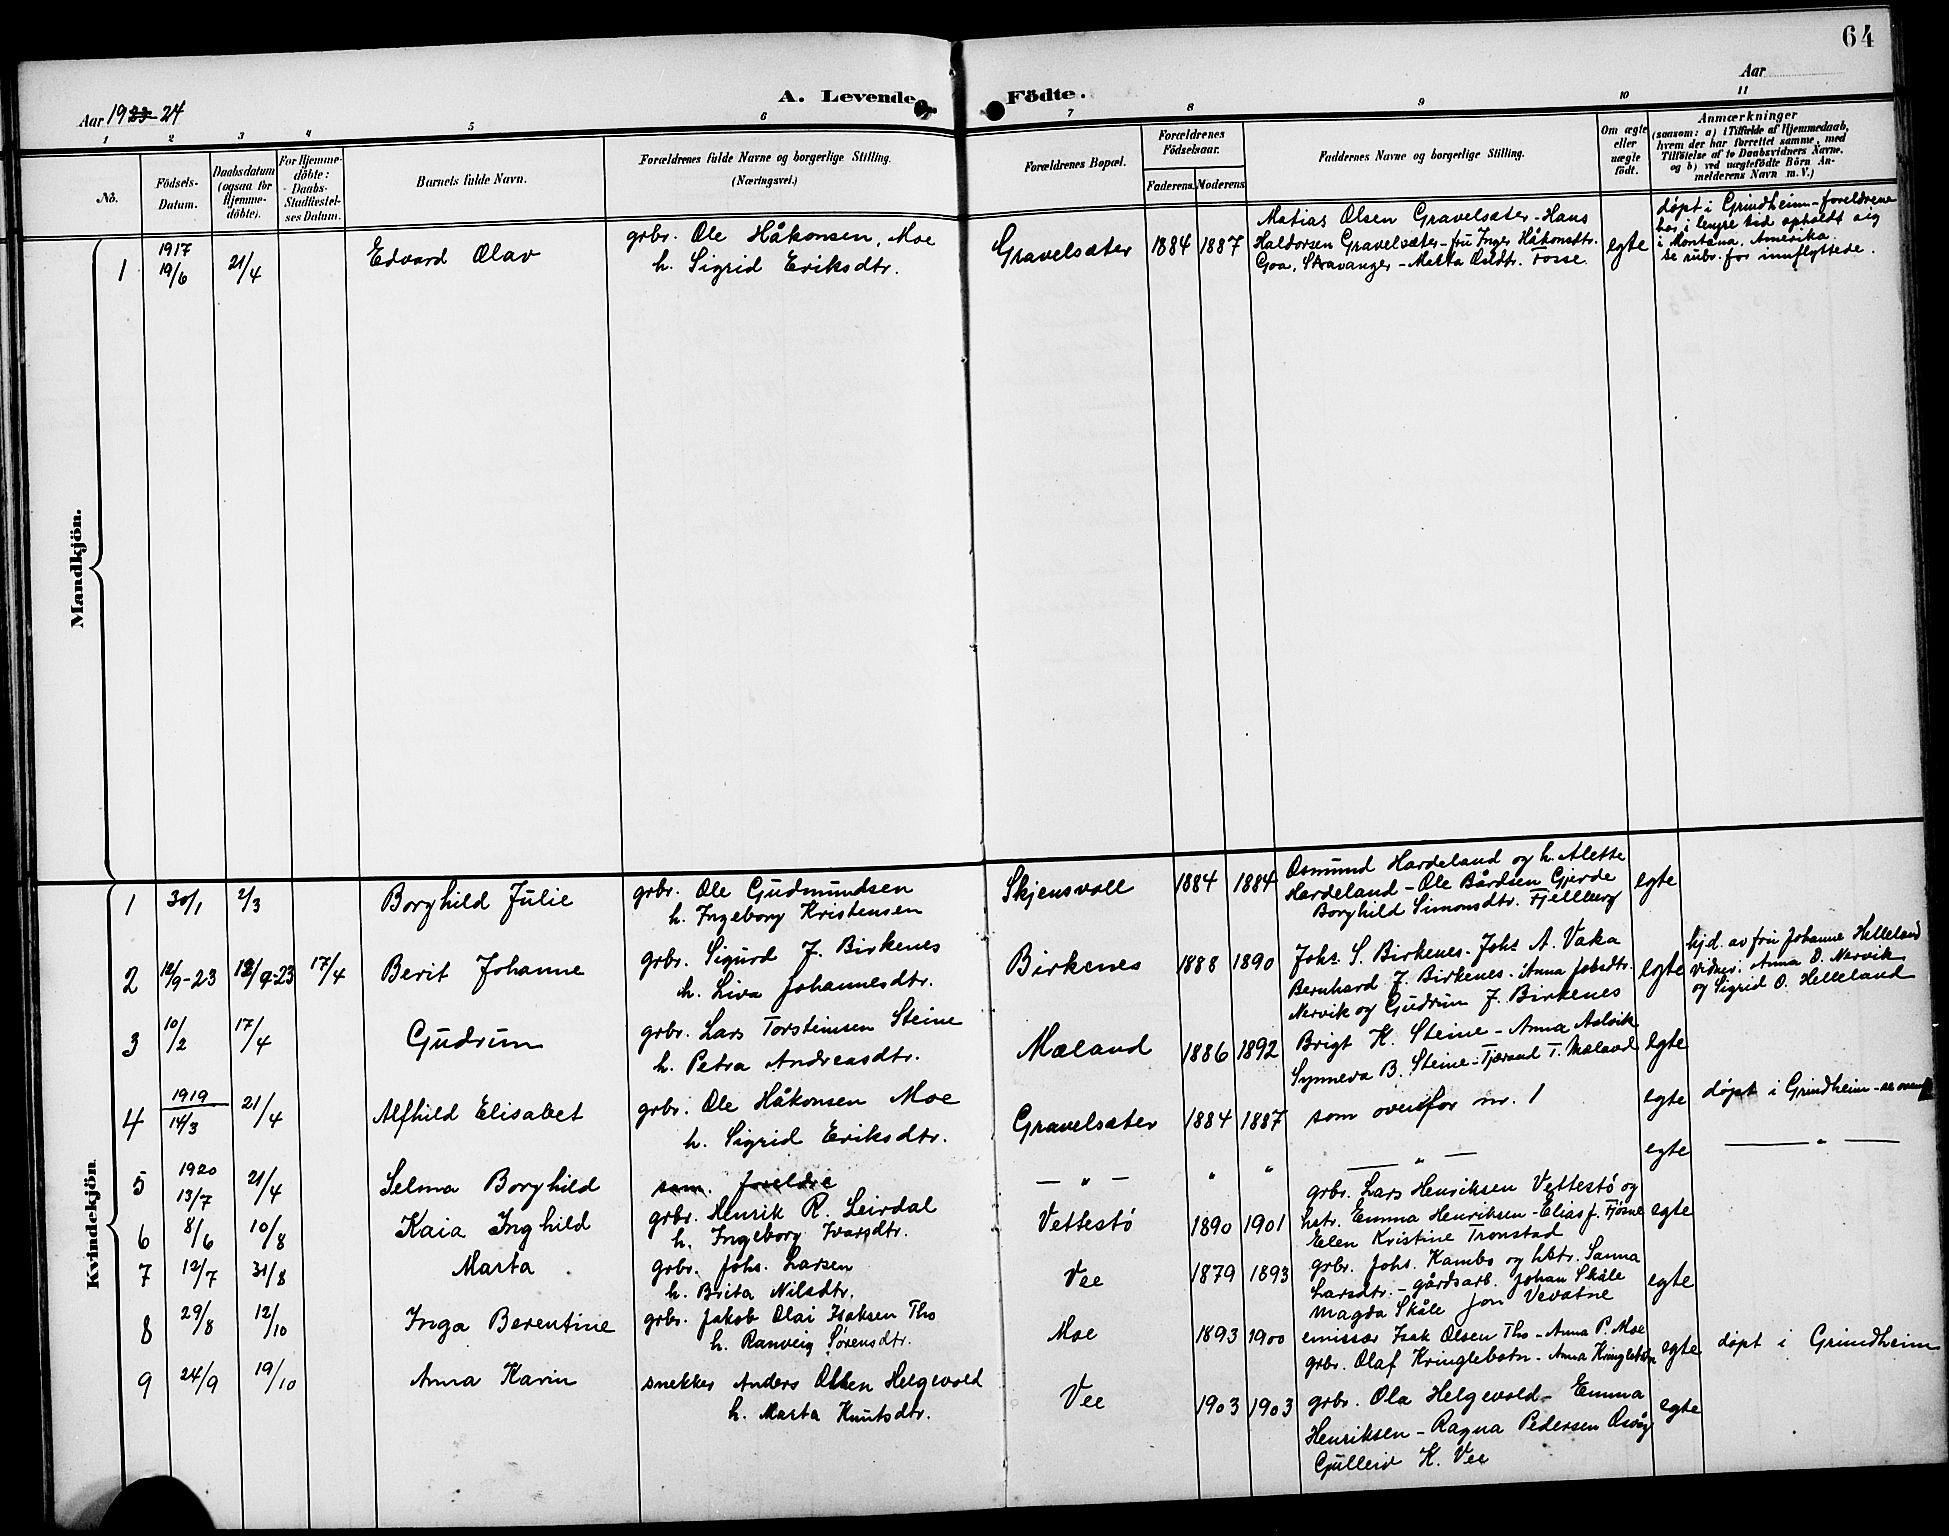 64
Aar 1923-24
A. Levende Födte.
Aar
1 2 3 4 5 6 7 8 9 10 11
No.
Födsels-Datum.
Daabsdatum (ogsaa for Hjemmedöbte).
For Hjemmedöbte: Daabs-Stadfæstelses Datum.
Barnets fulde Navn.
Forældrenes fulde Navne og borgerlige Stilling. (Næringsvei.)
Forældrenes Bopæl.
Forældrenes Födselsaar.
Faderens. Moderens.
Faddernes Navne og borgerlige Stilling.
Om ægte eller uægte födt.
Anmærkninger
(saasom: a) i Tilfælde af Hjemmedaab, hvem der har forrettet samme, med Tilföielse af to Daabsvidners Navne, og b) ved uægtefödte Börn Anmelderens Navn m. V.)
Mandkjön.
1 1917 19/6 21/4 Edvard Olav
grbr. Ole Håkonsen, Moe
h. Sigrid Eriksdtr.
Gravelsæter 1884 1887
Matias Olsen Gravelsæter - Hans
Haldorsen Gravelsæter - fru Inger Håkonsdtr.
Goa, Stavanger - Marta Osldtr. Fosse
egte
døpt i Grindheim - foreldrene
har i lengre tid opholdt sig
i Montana, Amerika
se rubr. for innflyttede.
Kvindekjön.
1 30/1 2/3 Borghild Julie
grbr. Ole Gudmundsen
h. Ingeborg Kristensen
Skjensvoll 1884 1884
Osmund Hardeland og h. Alette
Hardeland - Ole Bårdsen Gjerde
Borghild Simonsdtr. Fjellberg
egte
2 12/9-23 13/9-23 17/4 Berit Johanne
grbr. Sigurd J. Birkenes
h. Liva Johannesdtr.
Birkenes 1888 1890
Johs. S. Birkenes. Johs A. Vaka
Bernhard J. Birkenes. Anna Jobsdtr.
Nervik og Gudrun J. Birkenes
egte
hjd. av fru Johanne Helleland
vidner. Anna D. Nervik
og Sigrid O. Helleland
3 10/2 17/4 Gudrun
grbr. Lars Torsteinsen Steine
h. Petra Andreasdtr.
Mæland 1886 1892
Brigt K. Steine - Anna Aalvik
Synneva B. Steine - Tjerand T. Mæland
egte
4 1919 14/3 21/4 Alfhild Elisabet
grbr. Ole Håkonsen Moe
h. Sigrid Eriksdtr.
Gravelsæter 1884 1887
som ovenfor nr. 1
egte
døpt i Grindheim - se oven
5 1920 13/7 21/4 Selma Borghild
sam. foreldre
— „ — „ „ — „ —
egte
— „ —
6 8/6 10/8 Kaia Inghild
grbr. Henrik R. Leirdal
h. Ingeborg Ivarsdtr.
Vettestø 1890 1901
grbr. Lars Henriksen Vettestø og
hstr. Emma Henriksen - Elias J. Fjøsne
Elen Kristine Tronstad
egte
7 12/7 31/8 Marta
grbr. Johs. Larsen
h. Brita Nilsdtr.
Vee 1879 1893
grbr. Johs. Kambo og hstr. Sanna
Larsdtr. - gårdsarb. Johan Skåle
Magda Skåle Jon Vevatne
egte
8 29/8 12/10 Inga Berentine
grbr. Jakob Olai Isaksen Tho
h. Ranveig Sørensdtr.
Moe 1893 1900
emissær Isak Olsen Tho - Anna P. Moe
grbr. Olaf Kringlebotn - Anna Kringlebotn
egte
døpt i Grindheim
9 24/9 19/10 Anna Karin
snekker Anders Olsen Helgevold
h. Marta Knutsdtr.
Vee 1903 1903
grbr. Ola Helgevold - Emma
Henriksen - Ragna Pedersen Osvåg
Gulleiv K. Vee
egte